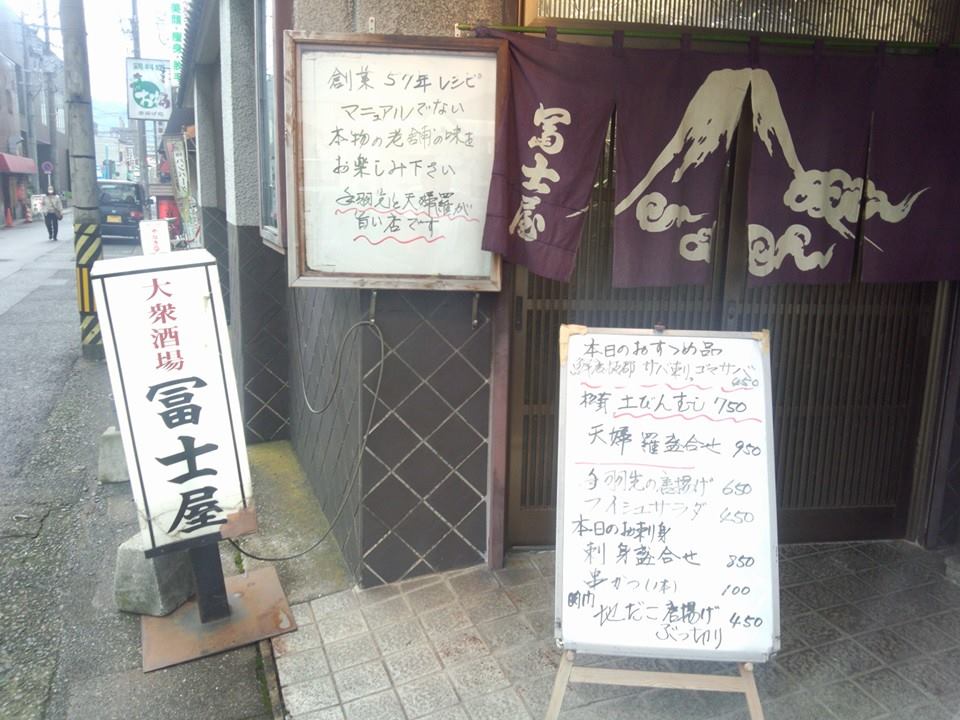 創業57年レシピ
マニュアルでない
本物の老舗の味を
お楽しみ下さい
手羽先と天婦羅が
旨い店です
冨士屋
大衆酒場
冨士屋
本日のおすすめ品
サバ刺 ゴマサバ
450
土びんむし 750
天婦羅盛合せ 950
手羽先の唐揚げ 650
フイシュサラダ 450
本日のお刺身
刺身盛合せ 850
串かつ(1本) 100
関門
地だこ唐揚げ 450
ぶつ切り